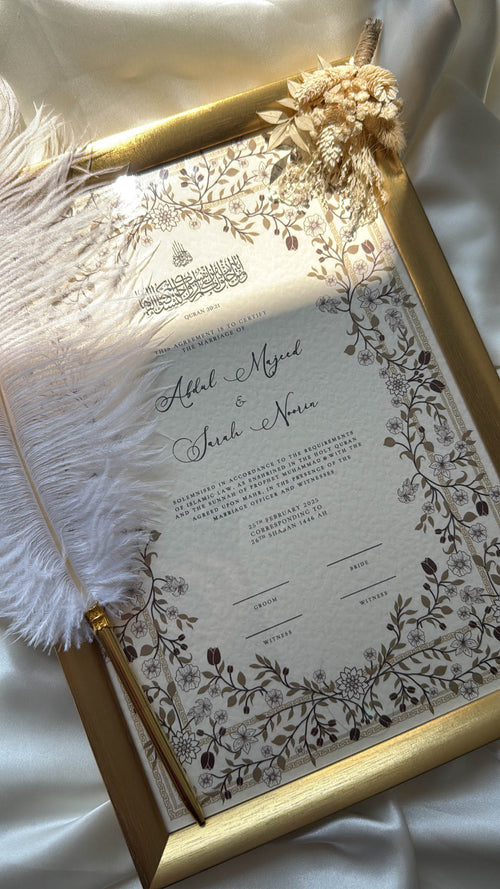 QURAN 30:21
THIS AGREEMENT IS TO CERTIFY
THE MARRIAGE OF
Abdul Majeed
&
Sarah Noorin
SOLEMNISED IN ACCORDANCE TO THE REQUIREMENTS
OF ISLAMIC LAW, AS ENSHRINED IN THE HOLY QURAN
AND THE SUNNAH OF PROPHET MUHAMMAD ﷺ WITH THE
AGREED UPON MAHR, IN THE PRESENCE OF THE
MARRIAGE OFFICER AND WITNESSES.
25TH FEBRUARY 2025
CORRESPONDING TO
26TH SHAJAN 1446 AH
GROOM
BRIDE
WITNESS
WITNESS